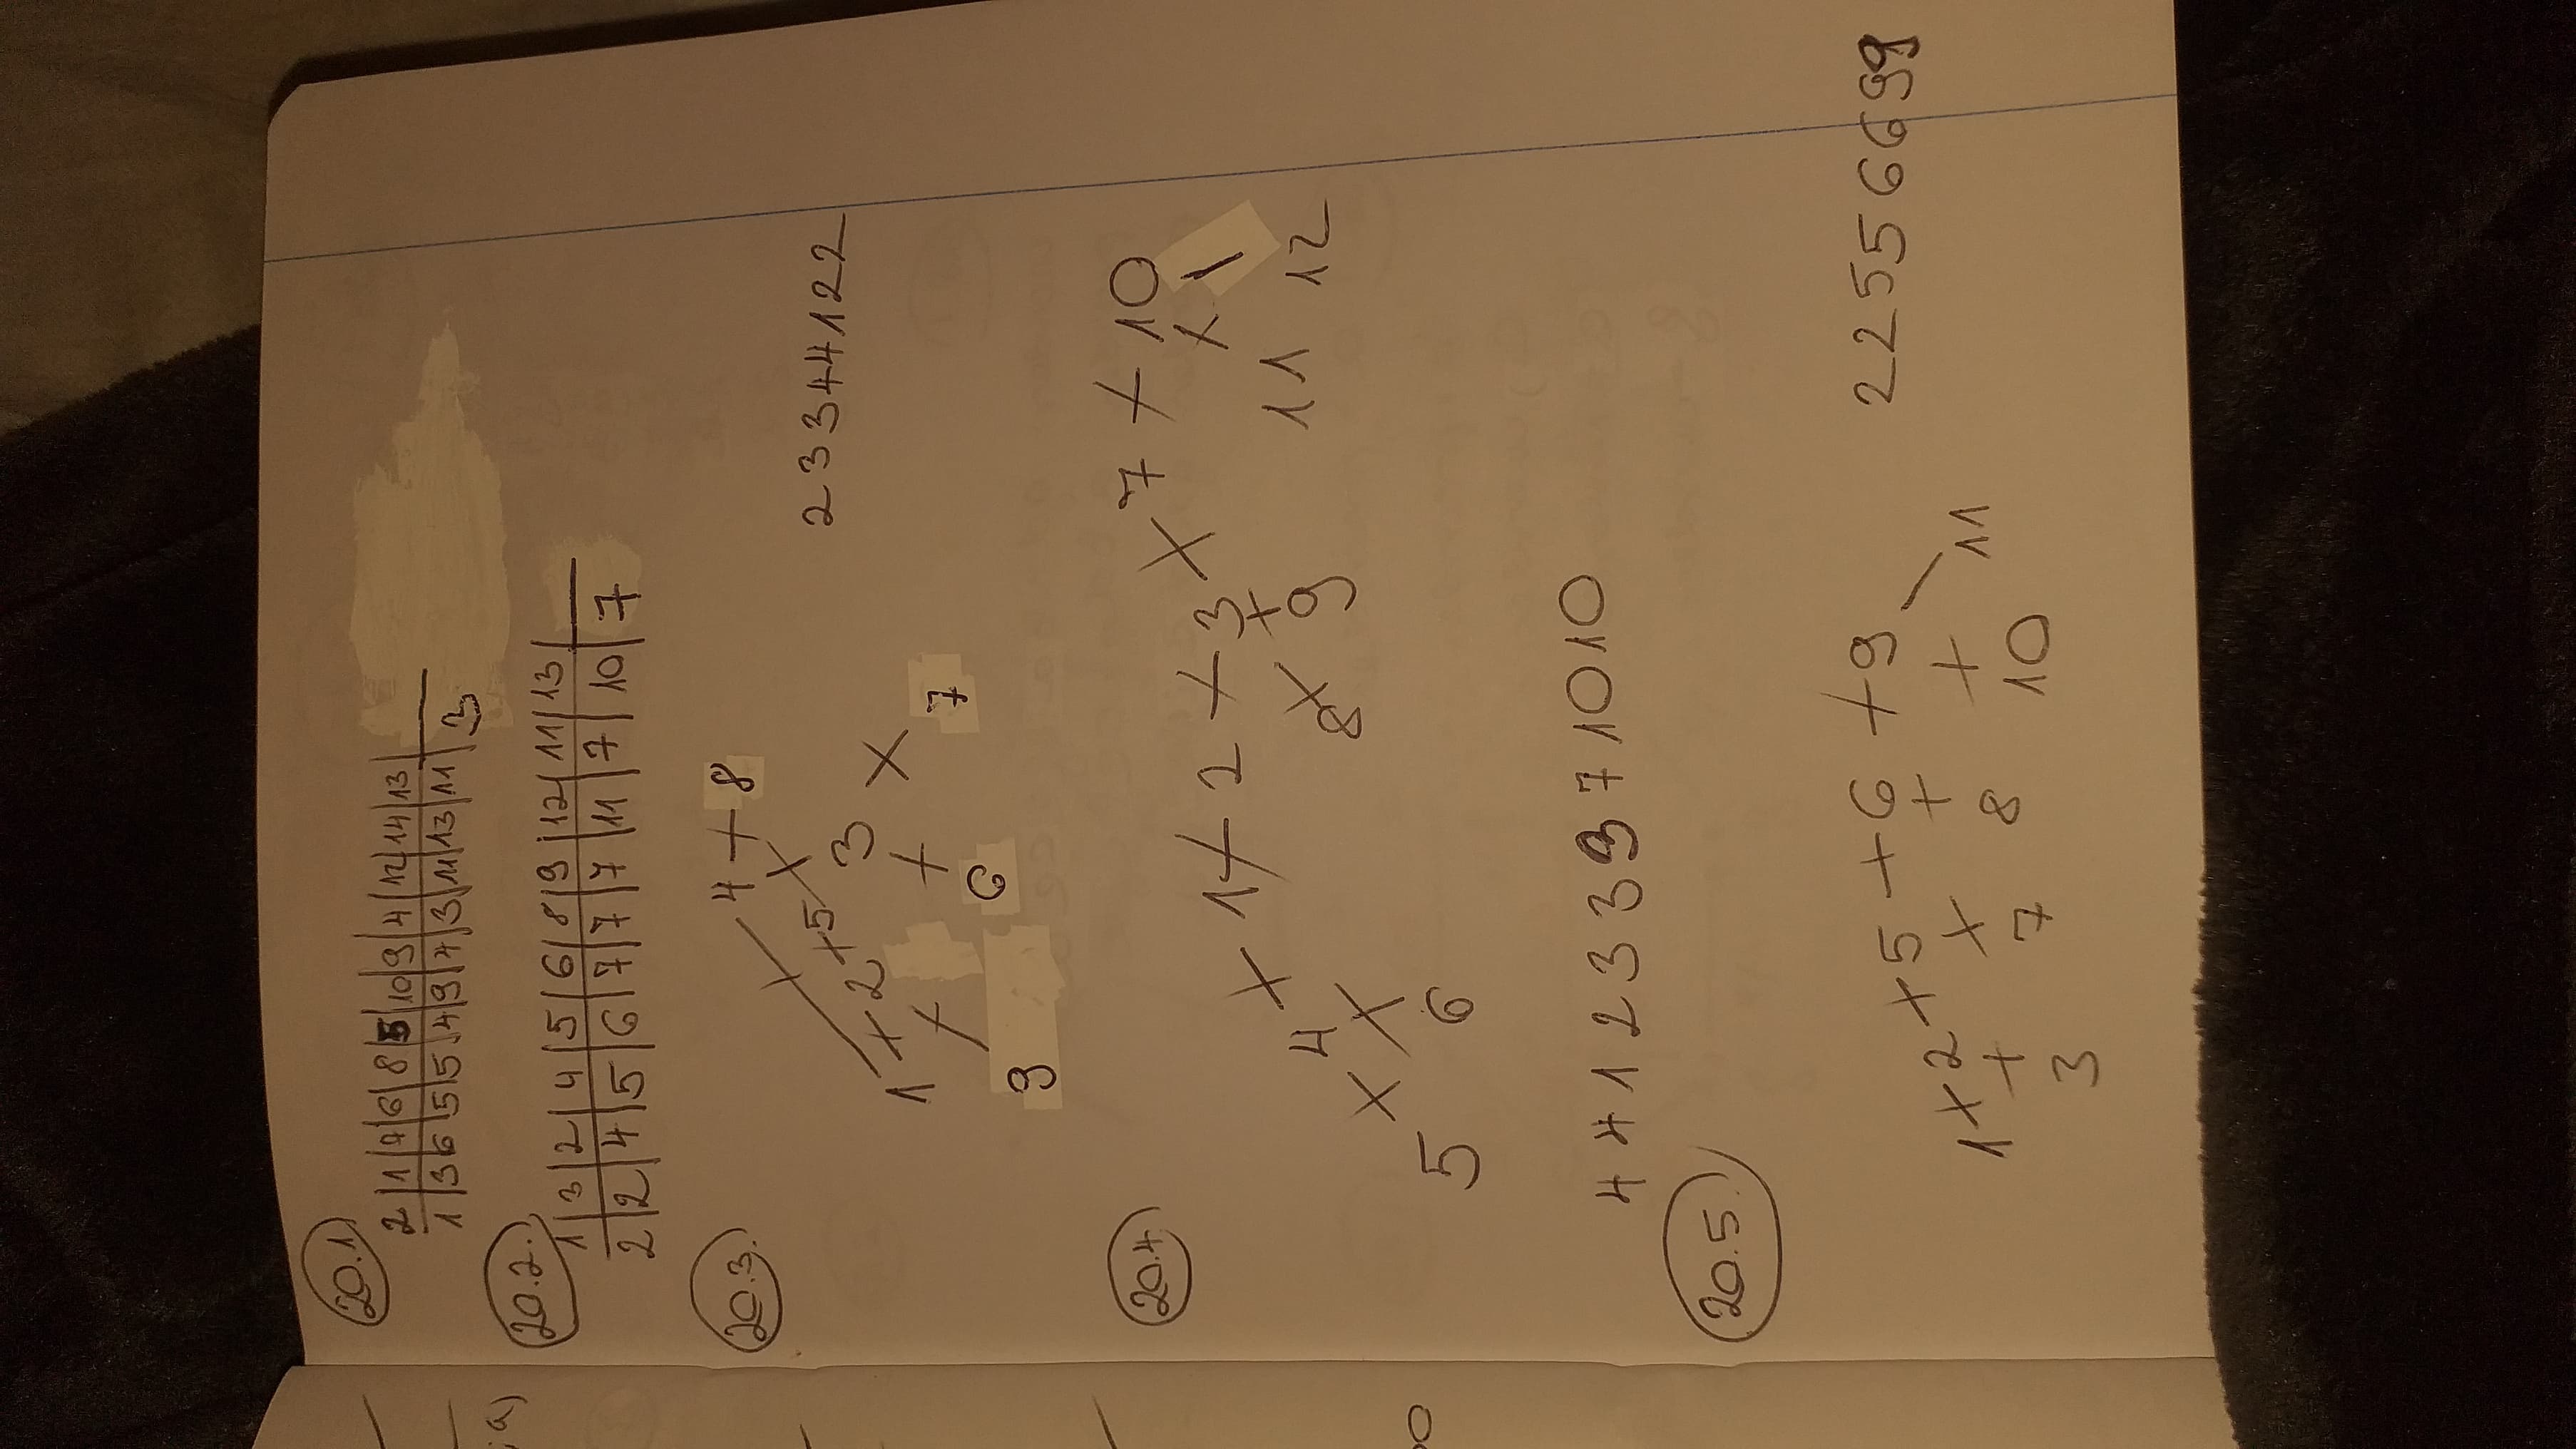 20.1
2|1|7|6|8|5|10|9|4|12|14|13|
1|3|6|5|5|4|9|4|3|11|13|11|3
20.2.
1|3|2|4|5|6|8|9|12|11|13|
2|2|4|5|6|7|7|7|11|7|10|7
20.3.
4 + 8
x x
1 + 2 + 5 3
+ + x
9 6 7
2 3 3 4 4 1 2 2
20.4.
x 7 + 10
x 1 + 2 + 3 x 1
4 x + 11 12
x x 8 9
5 6
4 4 1 2 3 3 9 7 10 10
20.5.)
1 x 2 + 5 + 6 + 9
+ x + +
3 7 8 10 11
2 2 5 5 6 6 9 9
a)